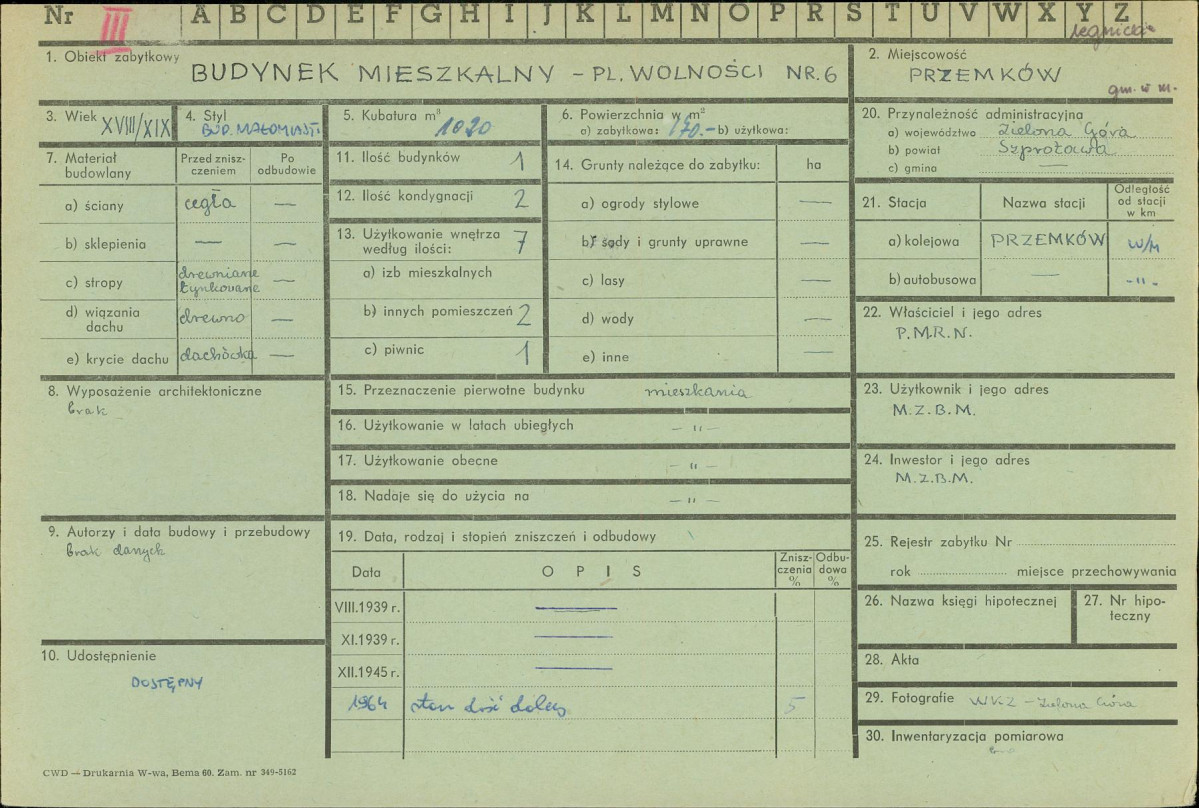 Nr III A B C D E F G H I J K L M N O P R S T U V W X Y Z
legnickie
1. Obiekt zabytkowy BUDYNEK MIESZKALNY – PL. WOLNOŚCI NR. 6
2. Miejscowość
PRZEMKÓW
gm. w m.
3. Wiek XVIII/XIX
4. Styl
BUD. MAŁOMIAST.
5. Kubatura m³ 1020
6. Powierzchnia w m²
a) zabytkowa: 170.– b) użytkowa:
20. Przynależność administracyjna
a) województwo Zielona Góra
b) powiat Szprotawa
c) gmina —
7. Materiał budowlany
Przed zniszczeniem
Po odbudowie
a) ściany cegła —
b) sklepienia — —
c) stropy drewniane tynkowane —
d) wiązania dachu drewno —
e) krycie dachu dachówka —
11. Ilość budynków 1
12. Ilość kondygnacji 2
13. Użytkowanie wnętrza według ilości: 7
a) izb mieszkalnych
b) innych pomieszczeń 2
c) piwnic 1
14. Grunty należące do zabytku: ha
a) ogrody stylowe —
b) sady i grunty uprawne —
c) lasy —
d) wody —
e) inne —
21. Stacja Nazwa stacji Odległość od stacji w km
a) kolejowa PRZEMKÓW w/m
b) autobusowa — –"–
22. Właściciel i jego adres
P.M.R.N.
8. Wyposażenie architektoniczne
brak
15. Przeznaczenie pierwotne budynku mieszkania
16. Użytkowanie w latach ubiegłych – " –
17. Użytkowanie obecne – " –
18. Nadaje się do użycia na – " –
23. Użytkownik i jego adres
M.Z.B.M.
24. Inwestor i jego adres
M.Z.B.M.
9. Autorzy i data budowy i przebudowy
brak danych
19. Data, rodzaj i stopień zniszczeń i odbudowy
Data OPIS Zniszczenia % Odbudowa %
VIII.1939 r. —
XI.1939 r. —
XII.1945 r. —
1964 stan dość dobry 5
25. Rejestr zabytku Nr
rok miejsce przechowywania
26. Nazwa księgi hipotecznej
27. Nr hipoteczny
10. Udostępnienie
DOSTĘPNY
28. Akta
29. Fotografie WKZ – Zielona Góra
30. Inwentaryzacja pomiarowa
CWD — Drukarnia W-wa, Bema 60. Zam. nr 349-5162